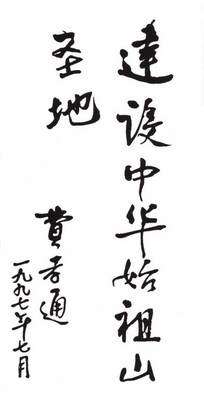 建设中华始祖山
圣地
费孝通
一九九七年七月